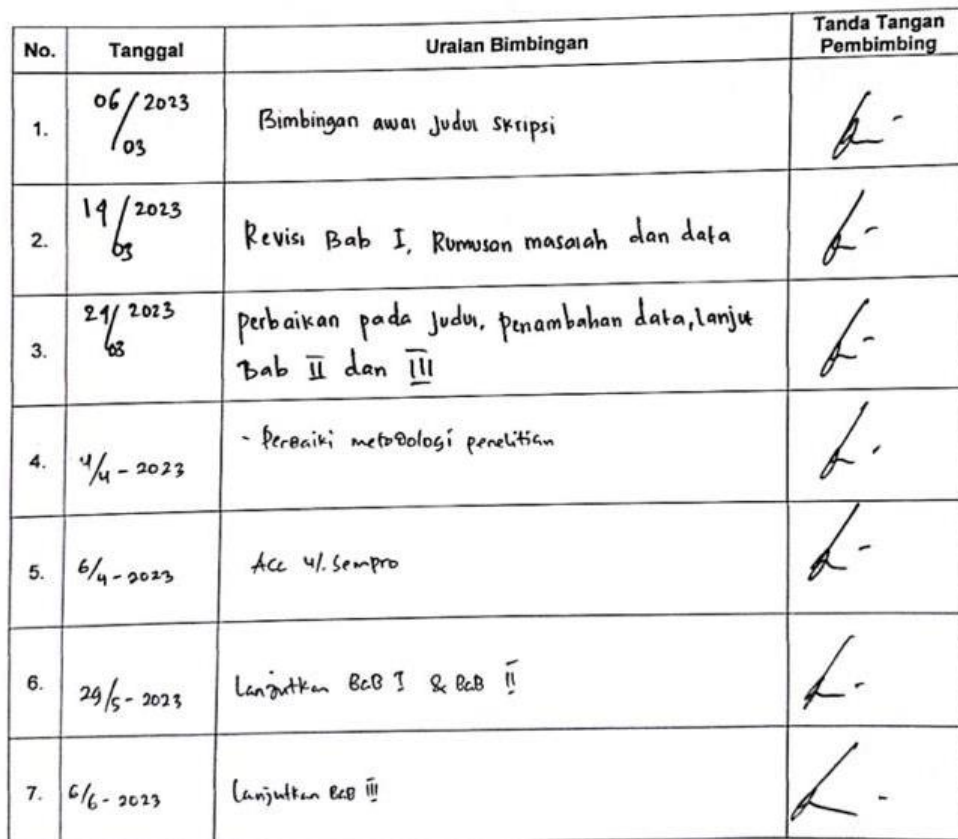 No. Tanggal Uraian Bimbingan Tanda Tangan
Pembimbing
1. 06/03 2023 Bimbingan awal Judul Skripsi
2. 14/03 2023 Revisi Bab I, Rumusan masalah dan data
3. 21/03 2023 perbaikan pada Judul, penambahan data, lanjut
Bab II dan III
4. 4/4 - 2023 - Perbaiki metodologi penelitian
5. 6/4 - 2023 Acc u/. Sempro
6. 29/5 - 2023 Lanjutkan BaB I & BaB II
7. 6/6 - 2023 Lanjutkan BaB III